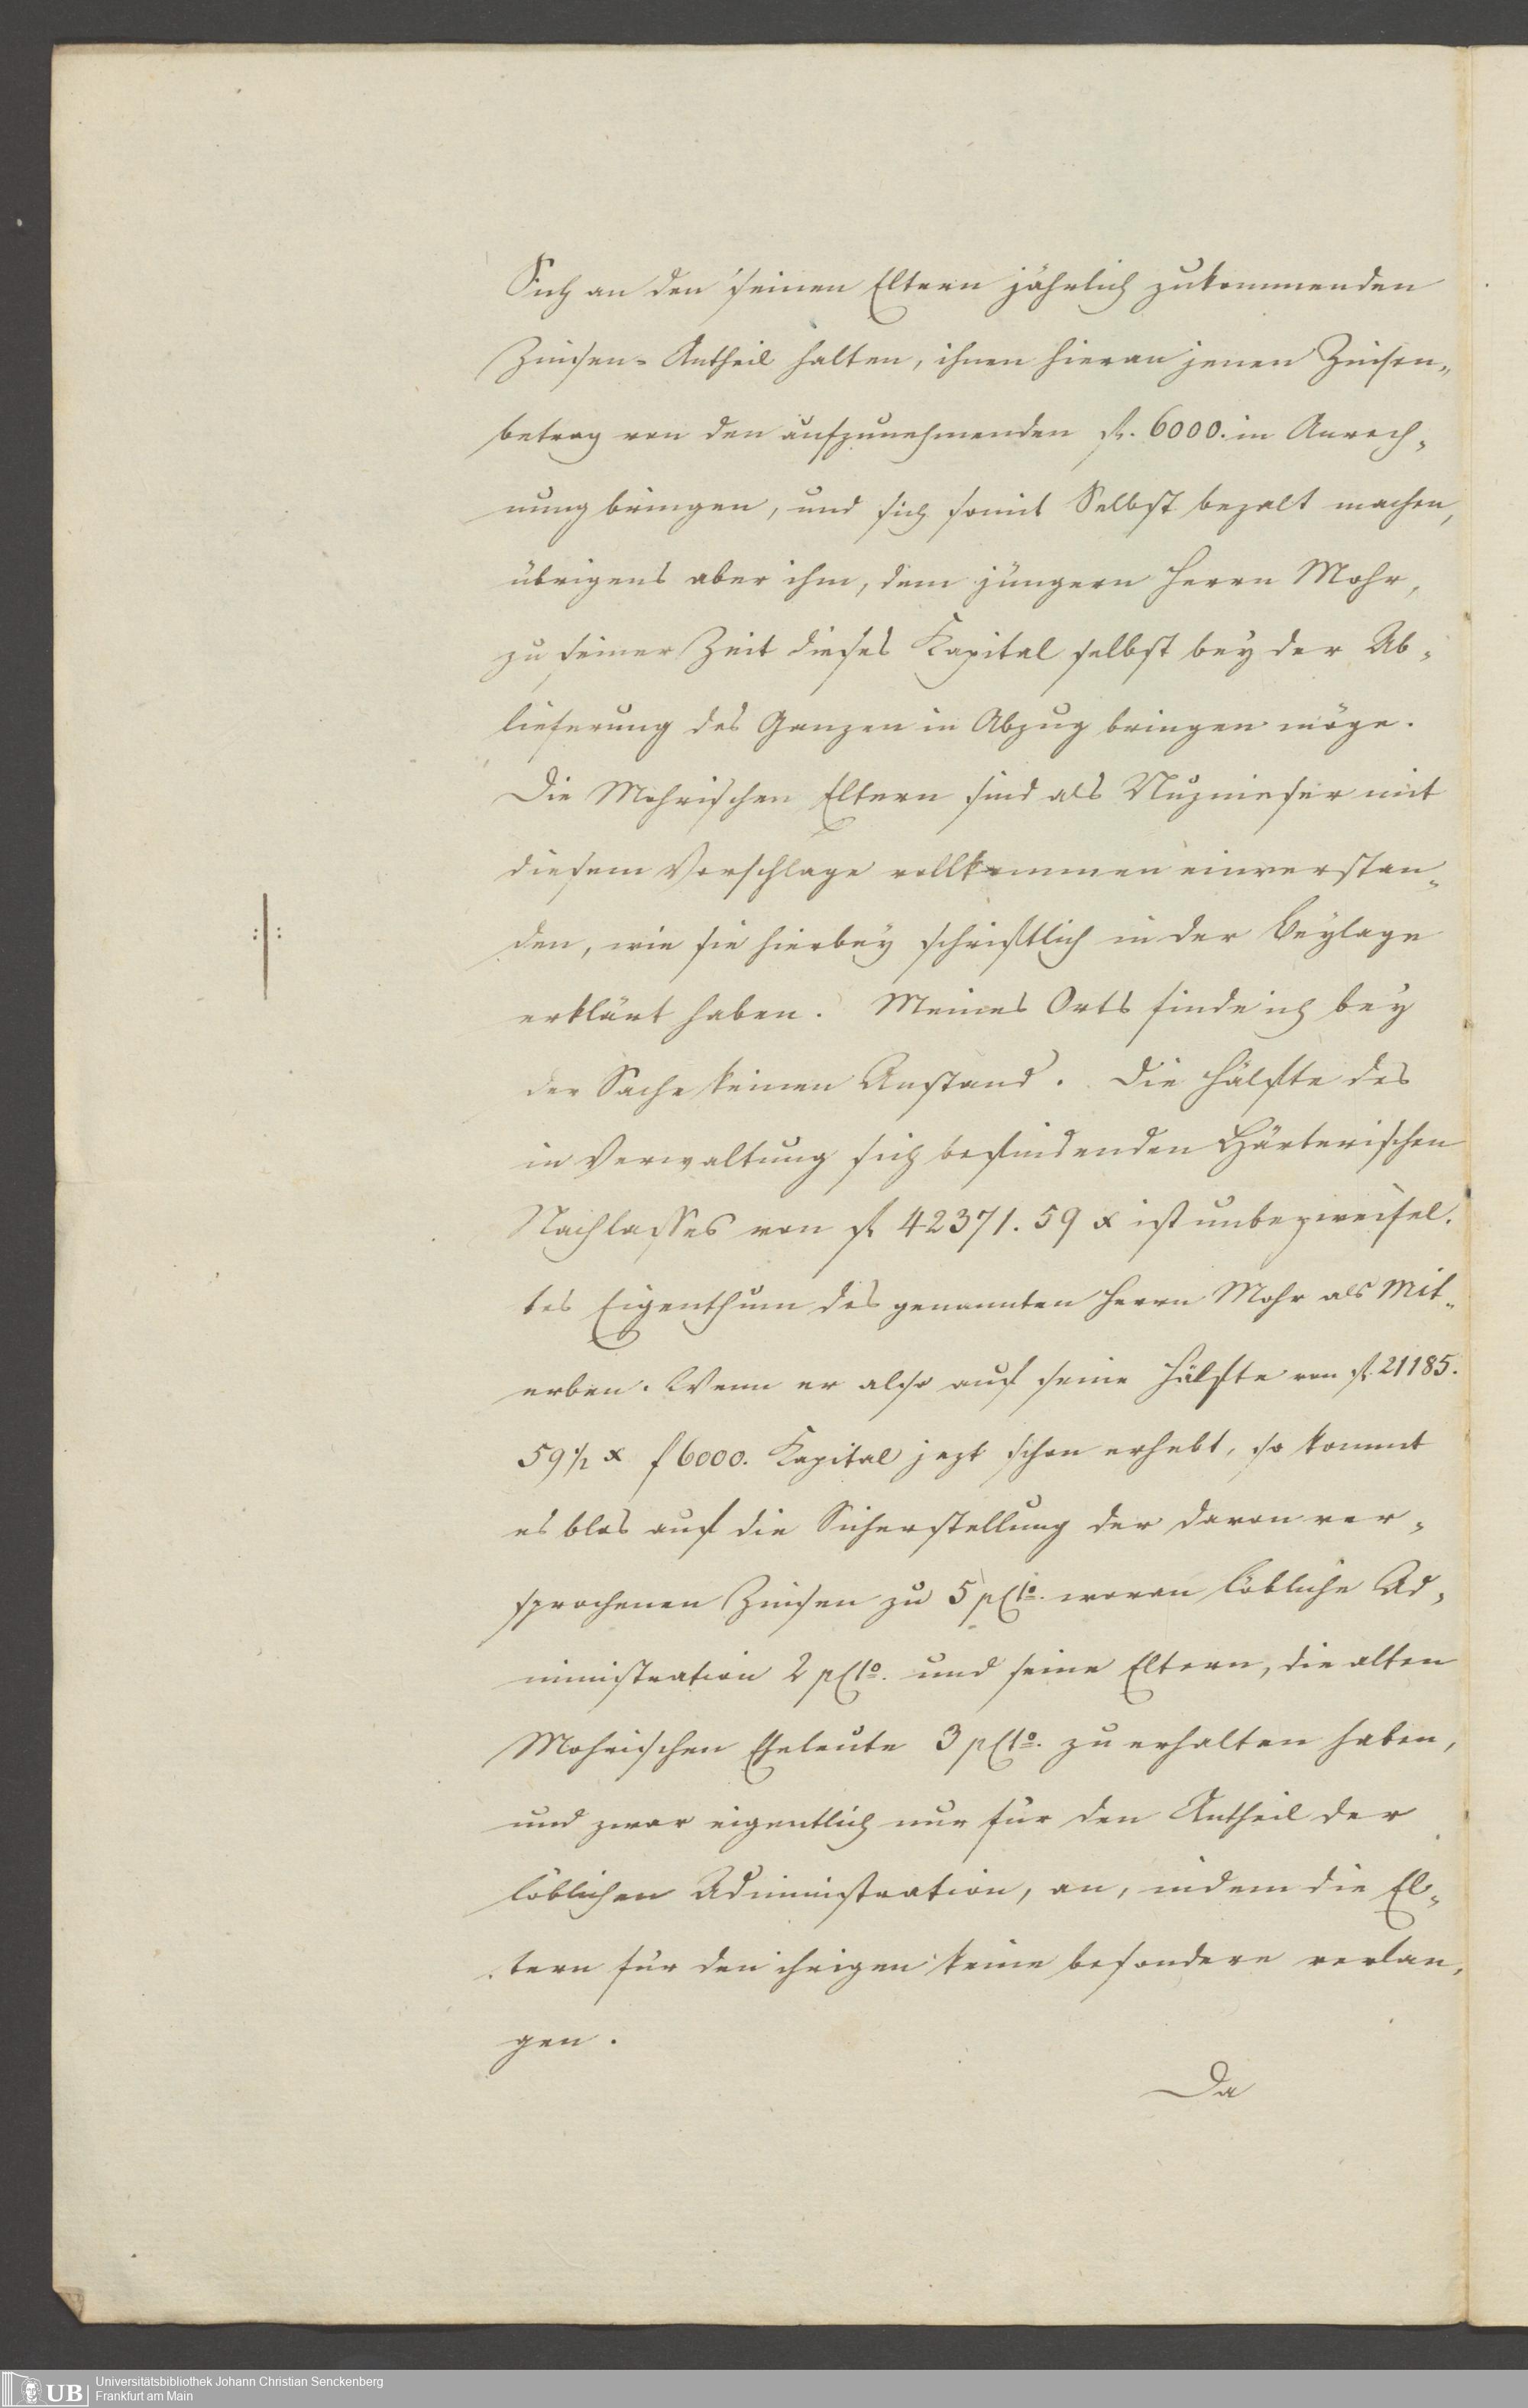 Sich an den seinen Eltern jährlich zukommenden
Zinsen-Antheil halten, ihnen hieran jenen Zinsen-
betrag von den aufzunehmenden fl. 6000. in Anrech-
nung bringen, und sich somit Selbst bezalt machen,
übrigens aber ihm, dem jüngern Herrn Mohr,
zu seiner Zeit dieses Kapital selbst bey der Ab-
lieferung des Ganzen in Abzug bringen möge.
Die Mohrischen Eltern sind als Nuznieser mit
diesem Vorschlage vollkommen einverstan-
den, wie sie hierbey schriftlich in der Beylage
:|:
erklärt haben. Meines Orts finde ich bey
der Sache keinen Anstand. Die Hälfte des
in Verwaltung sich befindenden Härterischen
Nachlasses von fl 42371. 59 x ist unbezweifel-
tes Eigenthum des genannten Herrn Mohr als Mit-
erben. Wenn er also auf seine Hälfte von fl. 21185.
59 1/2 x f 6000. Kapital jezt schon erhebt, so kommt
es blos auf die Sicherstellung der davon ver-
sprochenen Zinsen zu 5 pCto. wovon löbliche Ad-
ministration 2 pCto. und seine Eltern, die alten
Mohrischen Eheleute 3 pCto. zu erhalten haben,
und zwar eigentlich nur für den Antheil der
löblichen Administration, an, indem die El-
tern für den ihrigen keine besondere verlan-
gen.
Da
UB
Universitätsbibliothek Johann Christian Senckenberg
Frankfurt am Main